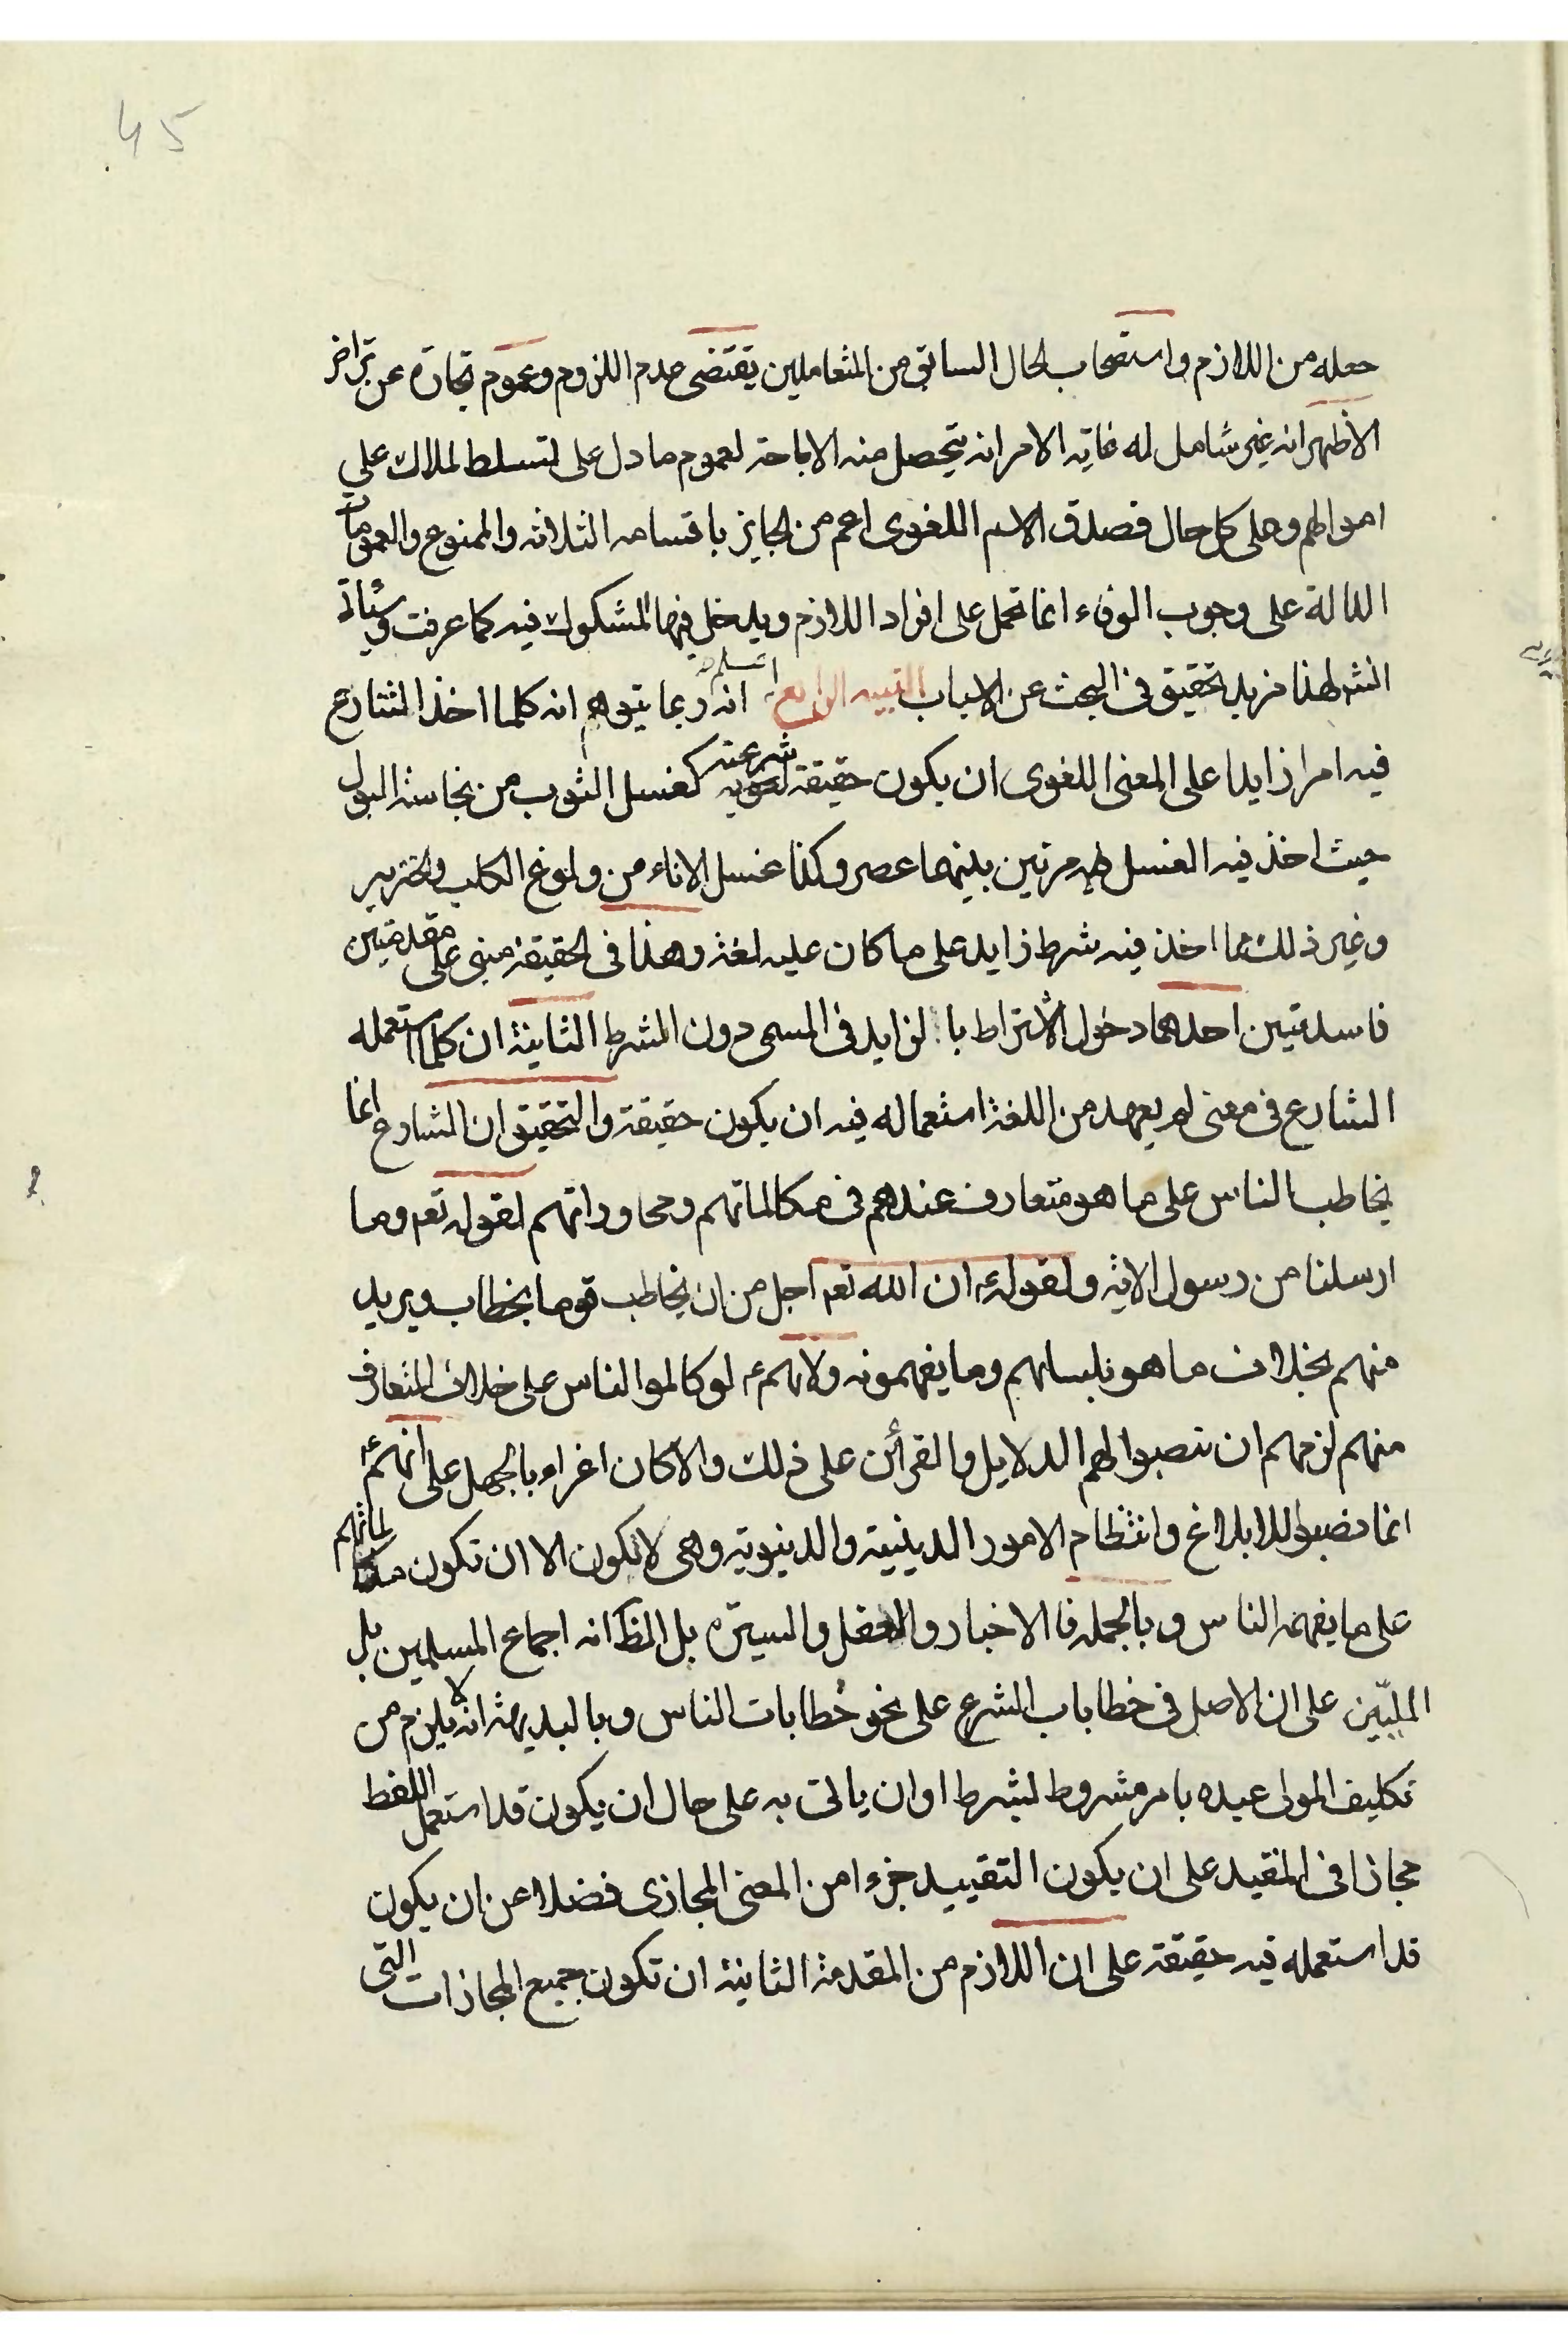 45
جعله من اللازم واستصحاب الحال السابق من المتعاملين يقتضى عدم اللزوم وعموم تجارة عن تراض
الاظهر انه غير شامل له غاية الامر انه يتحصل منه الاباحة لعموم ما دل على لتسلط لملاك على
اموالهم وعلى كل حال فصدق الاسم اللغوى اعم من الجايز باقسامه الثلاثه والممنوع والعمومات
الدالة على وجوب الوفاء انما تحمل على افراد اللازم ويدخل فيها المشكوك فيه كما عرفت وسياتى
انشر لهذا مزيد تحقيق فى البحث عن الاسباب التنبيه الرابع اعلم انه ربما يتوهم انه كلما اخذ الشارع
فيه امرا زايدا على المعنى اللغوى ان يكون حقيقة شرعيته كغسل الثوب من نجاسة البول
حيث اخذ فيه الغسل له مرتين بينهما عصر وكذا غسل الاناء من ولوغ الكلب والخنزير
وغير ذلك مما اخذ فيه شرط زايد على ما كان عليه لغة وهذا فى الحقيقة مبنى على مقدمتين
فاسدتين احدهما دخول الاشتراط بالزايد فى المسمى دون الشرط الثانية ان كلما استعمله
الشارع فى معنى لم يعهد من اللغة استعماله فيه ان يكون حقيقة والتحقيق ان الشارع انما
يخاطب الناس على ما هو متعارف عندهم فى مكالماتهم ومحاوراتهم لقوله تعم وما
ارسلنا من رسول الاية ولقوله ع ان الله تعم اجل من ان يخاطب قوما بخطاب ويريد
منهم بخلاف ما هو بلسانهم وما يفهمونه ولانهم ع لو كالموا الناس على خلاف المتعارف
منهم لزمهم ان ينصبوا لهم الدلايل والقرائن على ذلك والا كان اغراء بالجهل على انهم ع
انما نصبوا للابلاغ وانتظام الامور الدينية والدنيوية وهى لا تكون الا ان تكون مكالماتهم
على ما يفهمه الناس وبالجمله فالاخبار والعقل والسيرة بل الظ انه اجماع المسلمين بل
المليّين على ان الاصل فى خطابات الشرع على نحو خطابات الناس وبالبديهة انه لا يلزم من
تكليف المولى عبده بامر مشروط بشرط او ان ياتى به على حال ان يكون قد استعمل اللفظ
مجازا فى المقيد على ان يكون التقييد جزءا من المعنى المجازى فضلا عن ان يكون
قد استعمله فيه حقيقة على ان اللازم من المقدمة الثانية ان تكون جميع المجازات التى